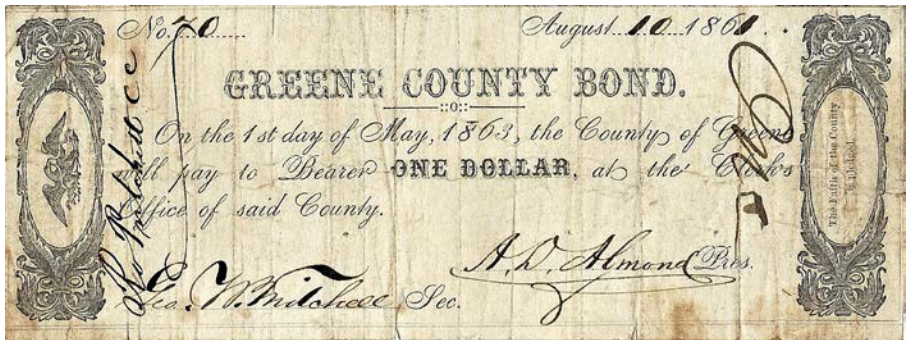 No. 70 August 10 1861.
GREENE COUNTY BOND.
::o::
On the 1st day of May, 1863, the County of Greene
will pay to Bearer ONE DOLLAR, at the Clerk's
Office of said County.
A. D. Almond Pres.
Geo. W. Mitchell Sec.
The Faith of the County
is pledged.